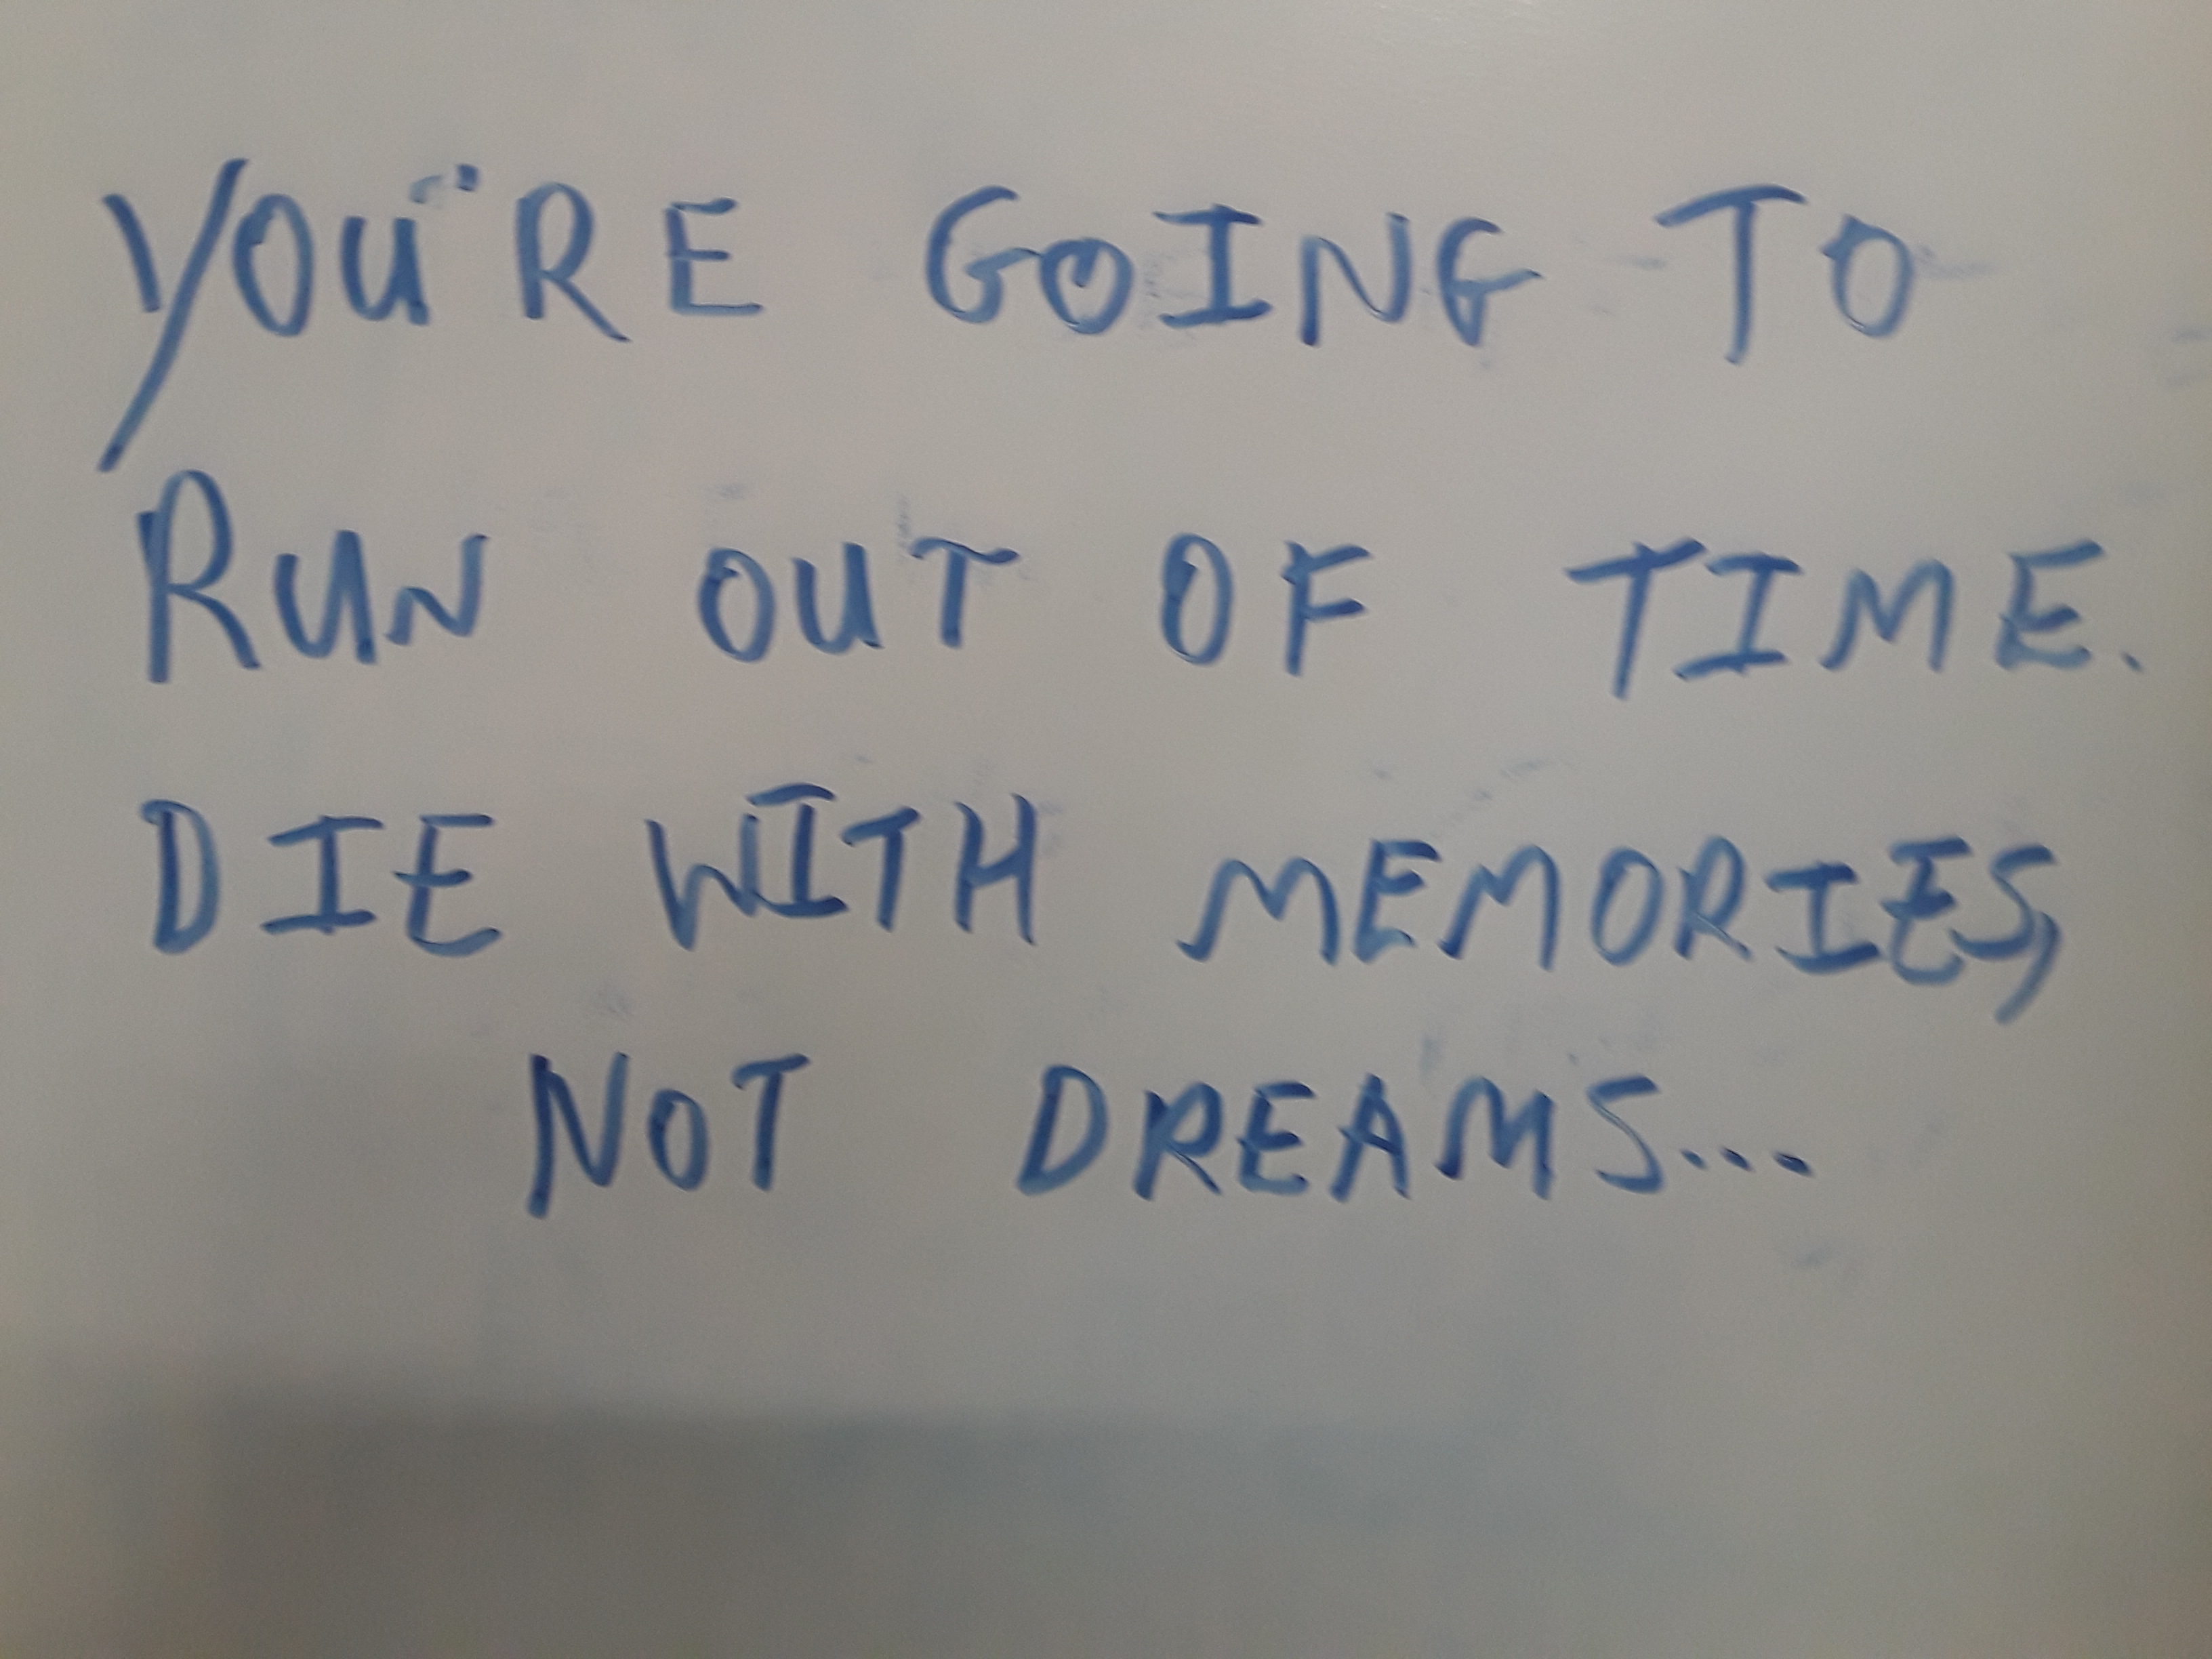 YOU'RE GOING TO
RUN OUT OF TIME.
DIE WITH MEMORIES,
NOT DREAMS...